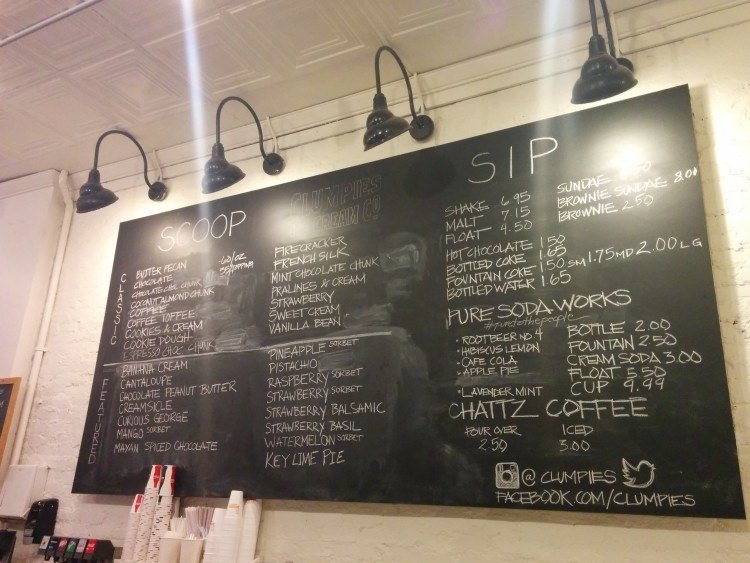 SCOOP
CLUMPIES
ICE CREAM CO
CLASSIC
BUTTER PECAN
CHOCOLATE
CHOCOLATE CHOC CHUNK
COCONUT ALMOND CHUNK
COFFEE
COFFEE TOFFEE
COOKIES & CREAM
COOKIE DOUGH
ESPRESSO CHOC CHUNK
.60/OZ
FIRECRACKER
FRENCH SILK
MINT CHOCOLATE CHUNK
PRALINES & CREAM
STRAWBERRY
SWEET CREAM
VANILLA BEAN
FEATURED
BANANA CREAM
CANTALOUPE
CHOCOLATE PEANUT BUTTER
CREAMSICLE
CURIOUS GEORGE
MANGO SORBET
MAYAN SPICED CHOCOLATE
PINEAPPLE SORBET
PISTACHIO
RASPBERRY SORBET
STRAWBERRY SORBET
STRAWBERRY BALSAMIC
STRAWBERRY BASIL
WATERMELON SORBET
KEY LIME PIE
SIP
SHAKE 6.95
MALT 7.15
FLOAT 4.50
SUNDAE
BROWNIE SUNDAE 8.00
BROWNIE 2.50
HOT CHOCOLATE 1.50
BOTTLED COKE 1.65
FOUNTAIN COKE 1.50 SM 1.75 MD 2.00 LG
BOTTLED WATER 1.65
PURE SODA WORKS
#puretothepeople
• ROOTBEER NO. 4
• HIBISCUS LEMON
• CAFE COLA
• APPLE PIE
• LAVENDER MINT
BOTTLE 2.00
FOUNTAIN 2.50
CREAM SODA 3.00
FLOAT 5.50
CUP 9.99
CHATTZ COFFEE
POUR OVER
2.50
ICED
3.00
@ CLUMPIES
FACEBOOK.COM/CLUMPIES